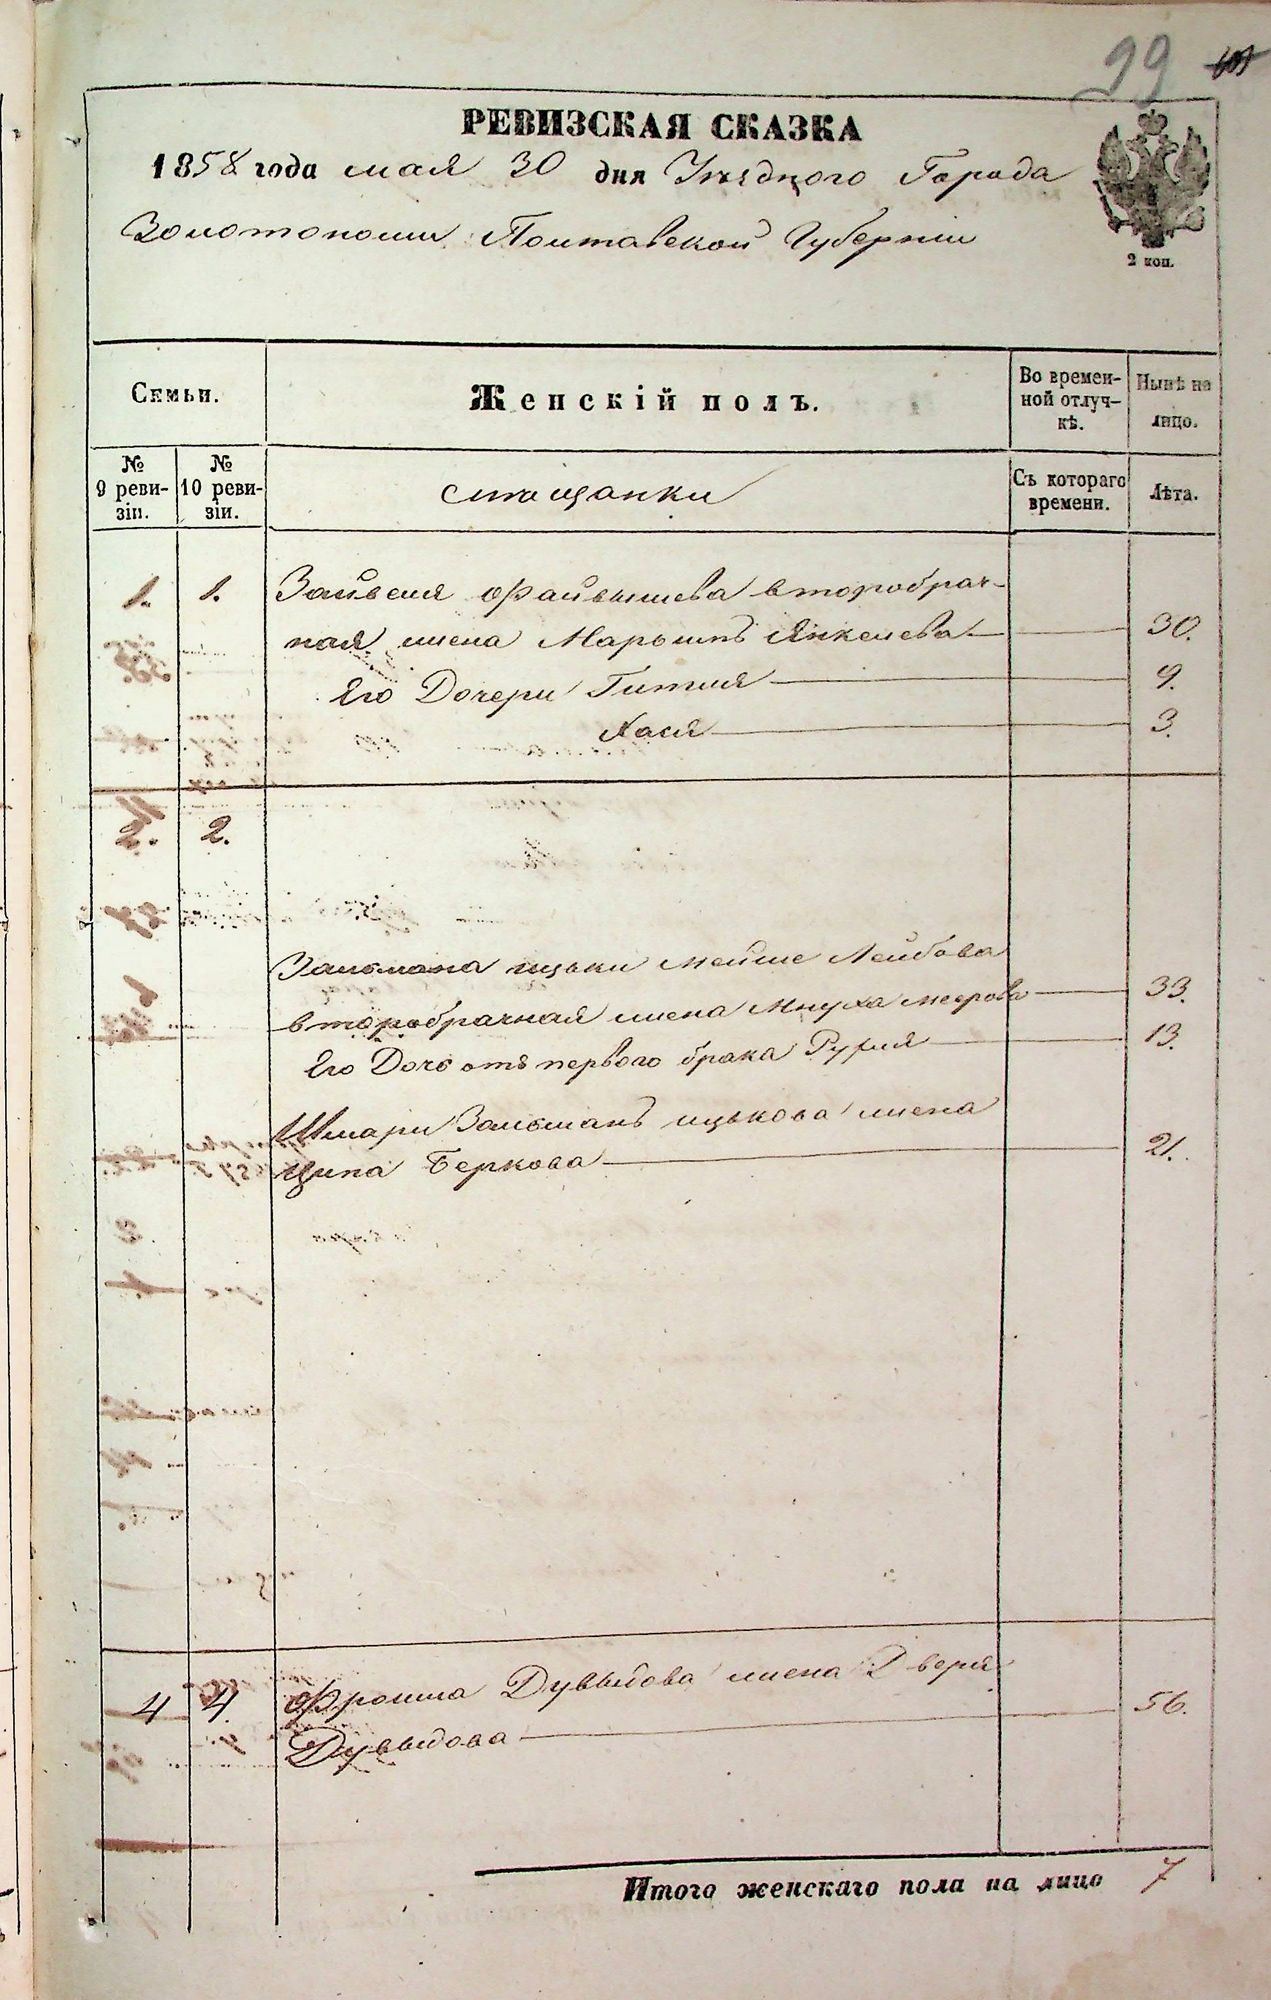 99
РЕВИЗСКАЯ СКАЗКА
1858 года мая 30 дня Уезднаго Города
Золотоноши Полтавской Губерніи
2 коп.
Семьи.
Женскій полъ.
Во времен-
ной отлуч-
кѣ.
Нынѣ на
лицо.
№
9 реви-
зіи.
№
10 реви-
зіи.
мѣщанки
Съ котораго
времени.
Лѣта.
1. 1. Файвышева второбрач-
ная жена Марьямъ Янкелева 30.
Его Дочери Гитля 9.
Хася 3.
2. 2.
Зальмана Ицьки Мейше Лейбова
второбрачная жена Мнуха Меерова 33.
Его Дочь отъ первого брака Рухля 13.
Шмари Зальманъ Ицькова жена
Ципа Беркова 21.
4 4. Фроима Дувыдова жена Двера
Дувыдова 56.
Итого женскаго пола на лицо 7